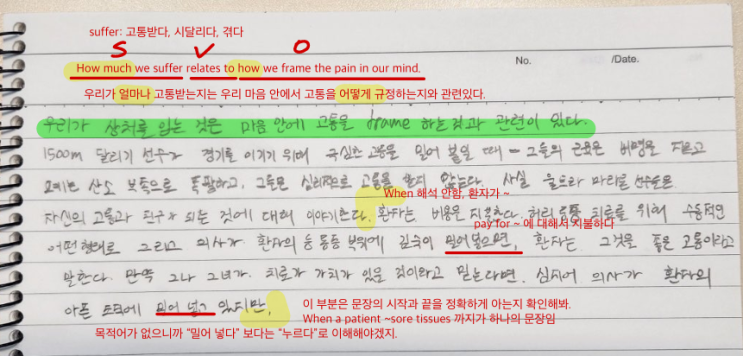 suffer: 고통받다, 시달리다, 겪다
S V O
How much we suffer relates to how we frame the pain in our mind.
No. /Date.
우리가 얼마나 고통받는지는 우리 마음 안에서 고통을 어떻게 규정하는지와 관련있다.
우리가 상처를 입는 것은 마음 안에 고통을 frame 하는것과 관련이 있다.
1500m 달리기 선수가 경기를 이기기 위해 극심한 고통을 밀어 붙일 때 - 그들의 근육은 비명을 지르고
산소 부족으로 폭발하고, 그들은 심리적으로 고통을 않는다. 사실 울트라 마라톤 선수들은
When 해석 안함, 환자가 ~
자신의 고통과 친구가 되는 것에 대해 이야기한다. 환자는 비용을 지불한다. 허리 치료를 위해 수동적인
pay for ~ 에 대해서 지불하다
어떤 형태로 그리고 의사가 환자의 부위에 깊숙이 밀어넣으면, 환자는 그것을 좋은 고통이라고
말한다. 만약 그나 그녀가 치료가 가치가 있을 것이라고 믿는다면, 심지어 의사가 환자의
아픈 조직에 밀어 넣고 있지만,
이 부분은 문장의 시작과 끝을 정확하게 아는지 확인해봐.
When a patient ~sore tissues 까지가 하나의 문장임
목적어가 없으니까 "밀어 넣다" 보다는 "누르다"로 이해해야겠지.